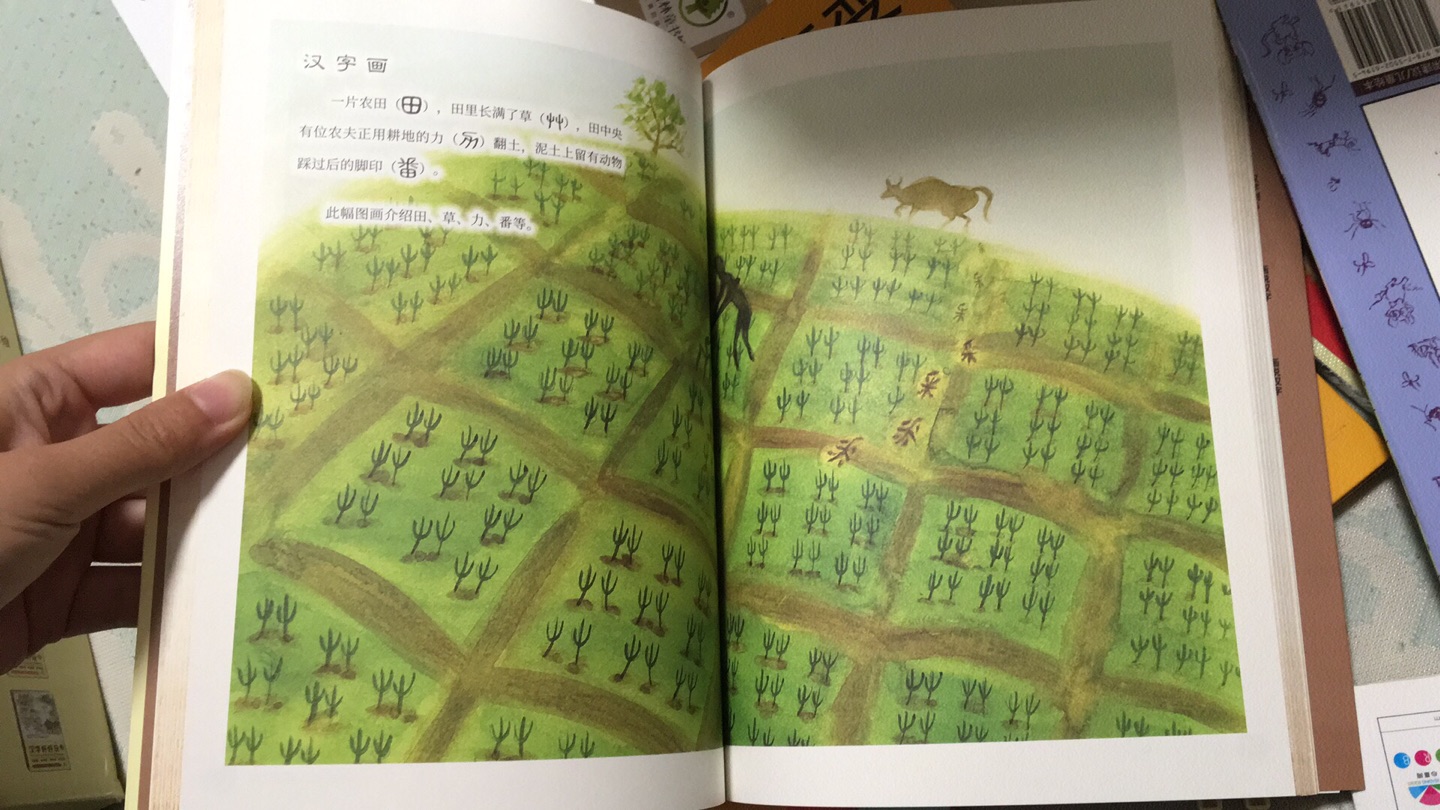 汉字画
一片农田（田），田里长满了草（艸），田中央
有位农夫正用耕地的力（力）翻土，泥土上留有动物
踩过后的脚印（番）。
此幅图画介绍田、草、力、番等。